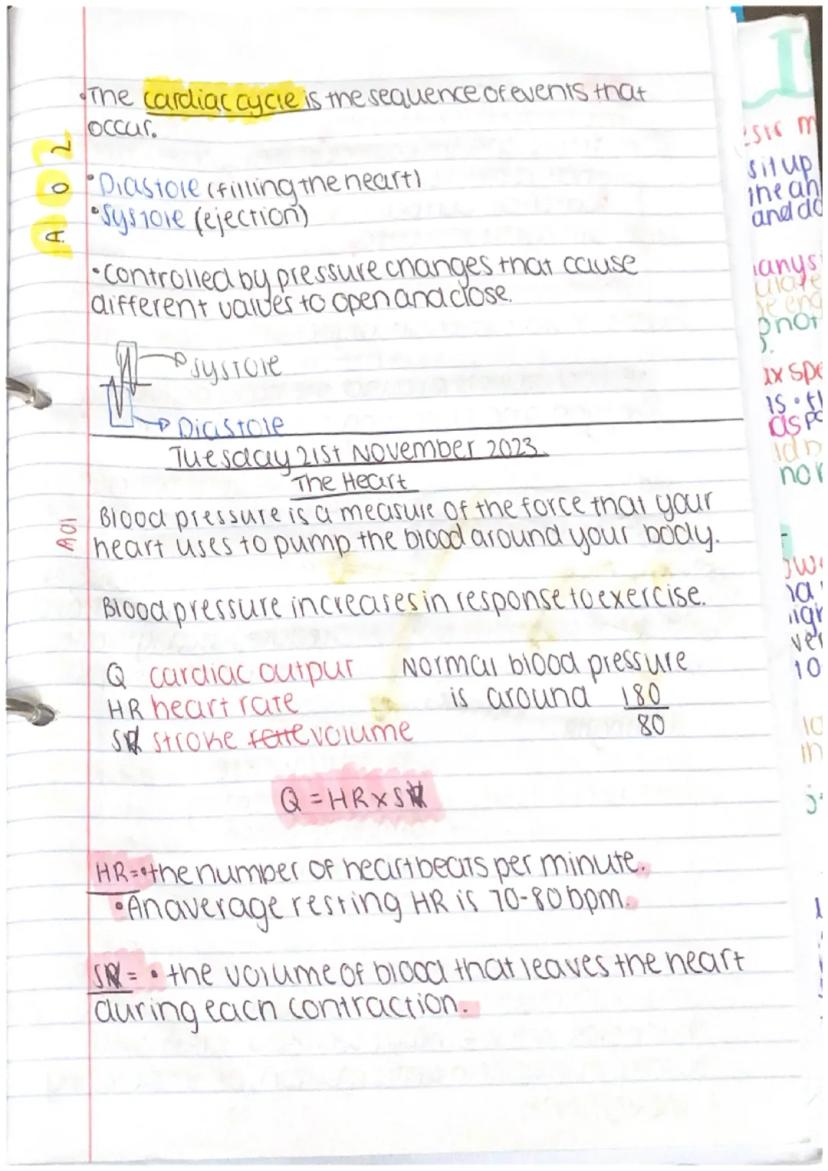 •The cardiac cycle is the sequence of events that
occur.
A02
•Diastole (filling the heart)
•Systole (ejection)
•Controlled by pressure changes that cause
different valves to open and close.
Systole
Diastole
Tuesday 21st November 2023
The Heart
A01
Blood pressure is a measure of the force that your
heart uses to pump the blood around your body.
Blood pressure increases in response to exercise.
Q cardiac output
HR heart rate
SV stroke volume
Normal blood pressure
is around 180
80
Q = HR x SV
HR= •the number of heartbeats per minute.
•An average resting HR is 70-80bpm.
SV= • the volume of blood that leaves the heart
during each contraction.
sit up
and
not
is
10